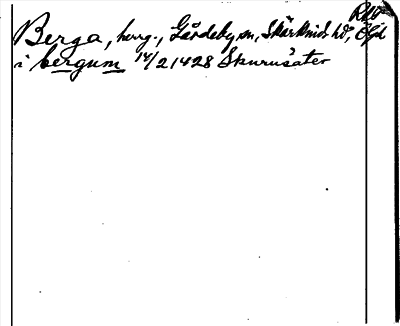 RAP
Berga, herrg., Gårdeby sn, Skärkinds hd, Ögl
i bergum 14/2 1428 Skurusäter